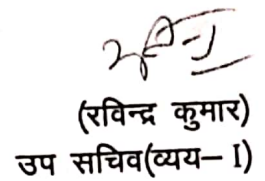 (रविन्द्र कुमार)
उप सचिव(व्यय– I)